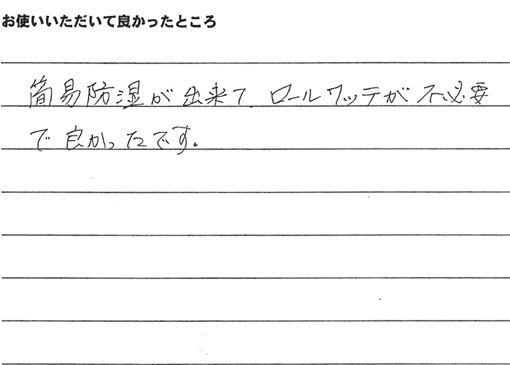 お使いいただいて良かったところ
簡易防湿が出来て ロールワッテが不必要
で良かったです。